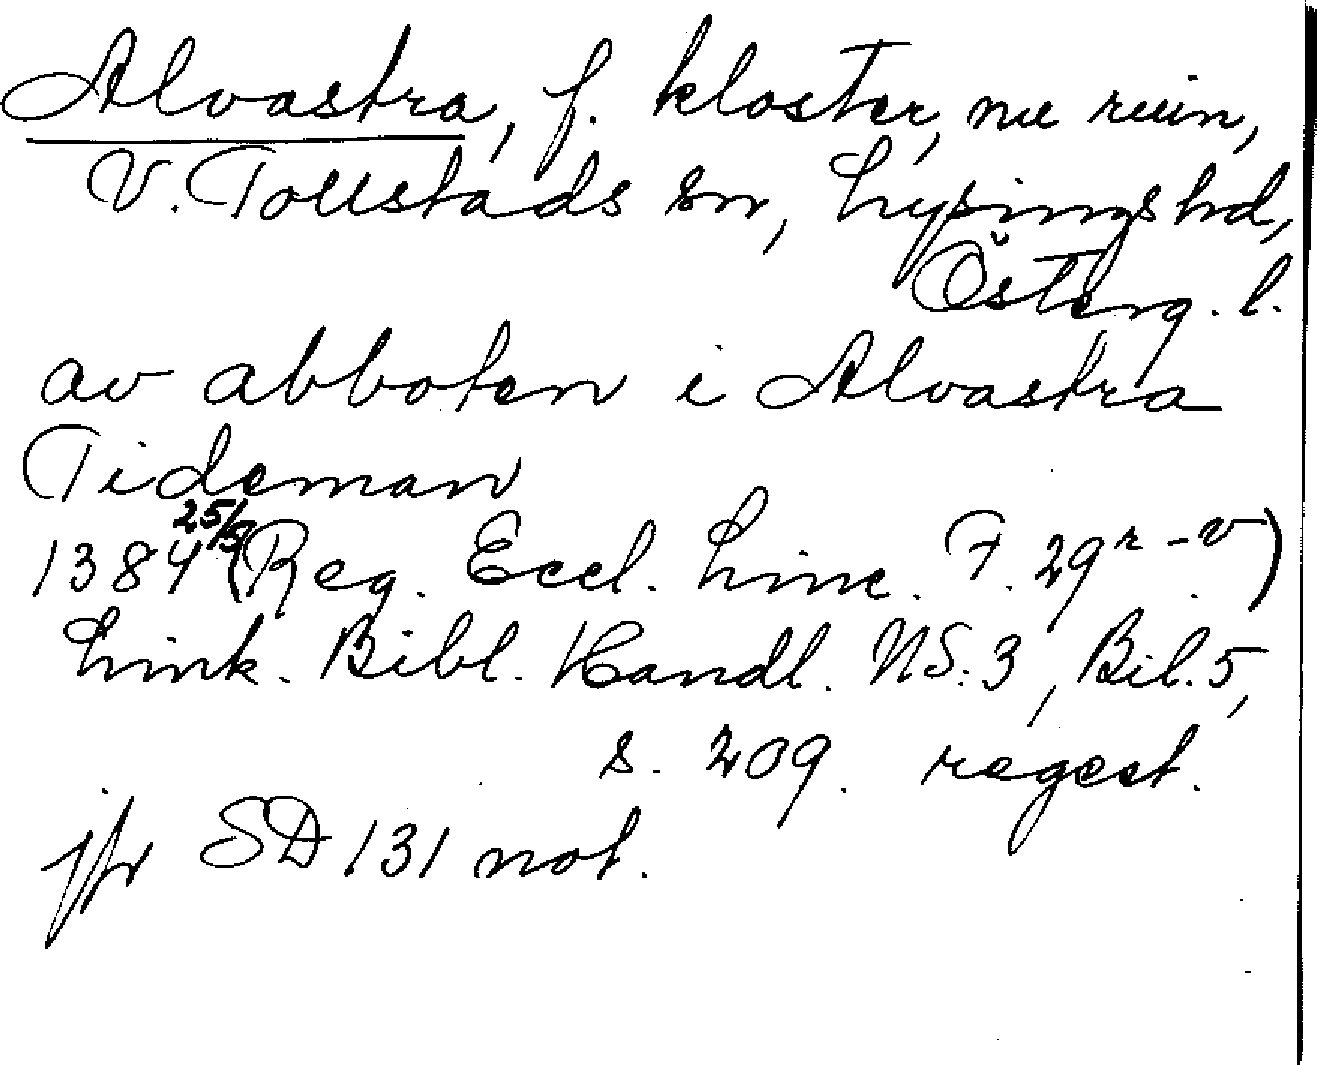 Alvastra, f. kloster, nu ruin,
V. Tollstads sn, Lysings hd,
Österg. l.
av abboten i Alvastra
Tideman
1384 25/8 (Reg. Eccl. Linc. F. 29 r-v)
Link. Bibl. Handl. NS:3, Bil. 5,
s. 209. regest.
jfr SD 131 not.